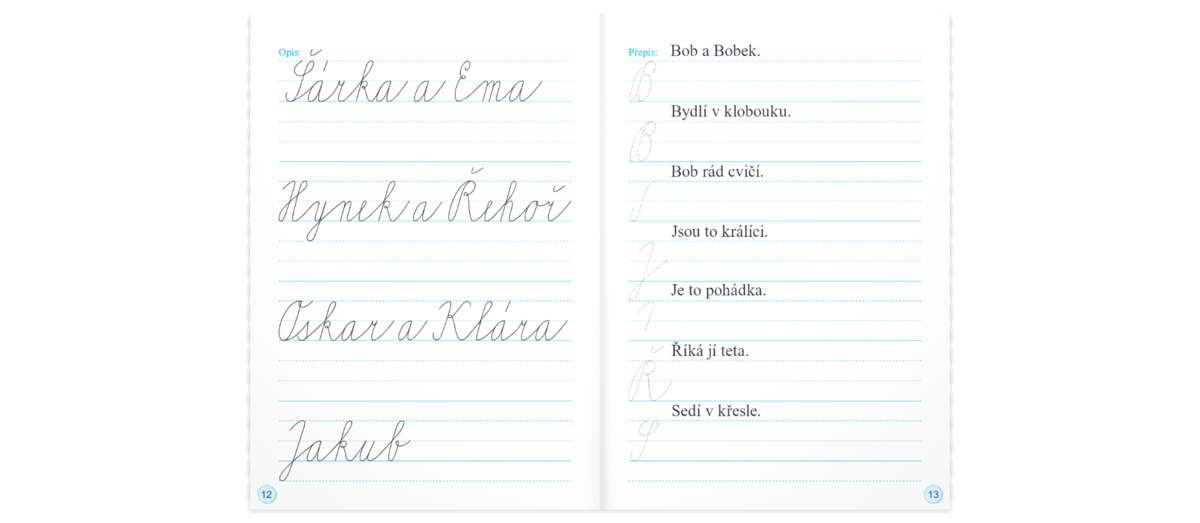 Opis:
Šárka a Ema
Hynek a Řehoř
Oskar a Klára
Jakub
12
Přepis: Bob a Bobek.
B
Bydlí v klobouku.
B
Bob rád cvičí.
Jsou to králíci.
J
Je to pohádka.
Říká jí teta.
Ř
Sedí v křesle.
S
13